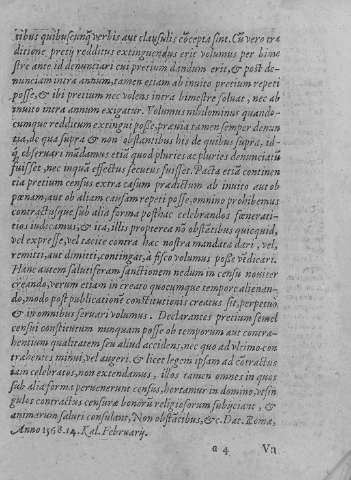 tibus quibuscunq; verbis aut clausulis cõcepta sint. Cũ vero tra
ditione pretij redditus extinguendus erit volumus per bime
stre ante id denunciari cui pretium dandum erit, & post de-
nunciam intra annum, tamen etiam ab inuito pretium repeti
posse, & ibi pretium nec volens intra bimestre soluat, nec ab
inuito intra annum exigatur. Volumus nihilominus quando-
cumque redditum extingui posse, præuia tamen semper denun
tia, de qua supra & non obstantibus his de quibus supra, id-
q; obseruari mãdamus etiã quod pluries ac pluries denunciatũ
fuisset, nec inquã effectus secutus fuisset. Pacta etiã continen
tia pretium census extra casum prædictum ab inuito aut ob
pœnam, aut ob aliam causam repeti posse, omnino prohibemus
contractusque sub alia forma posthac celebrandos fœnerati-
tios iudicamus, & ita, illis propterea nõ obstãtibus quicquid,
vel expresse, vel tacite contra hac nostra mandata dari, vel,
remitti, aut dimitti, contingat, à fisco volumus posse vẽdicari.
Hanc autem salutiferam sanctionem nedum in censu nouiter
creando, verum etiam in creato quocumque tempore alienan-
do, modo post publicationẽ constitutionis creatus sit, perpetuo
& in omnibus seruari volumus. Declarantes pretium semel
censui constitutum nunquam posse ob temporum aut contra-
hentium qualitatem seu aliud accidens, nec quo ad vltimo con
trahentes minui, vel augeri. & licet legem ipsam ad cõtractus
iam celebratos, non extendamus, illos tamen omnes in quos
sub alia forma peruenerunt census, hortamur in domino, vt sin
gulos contractus censuræ bonorũ religiosorum subijciant, &
animarum saluti consulant, Non obstãtibus, &c. Dat. Romæ,
Anno 1568. 14. Kal. Februarij.
G 4 Va